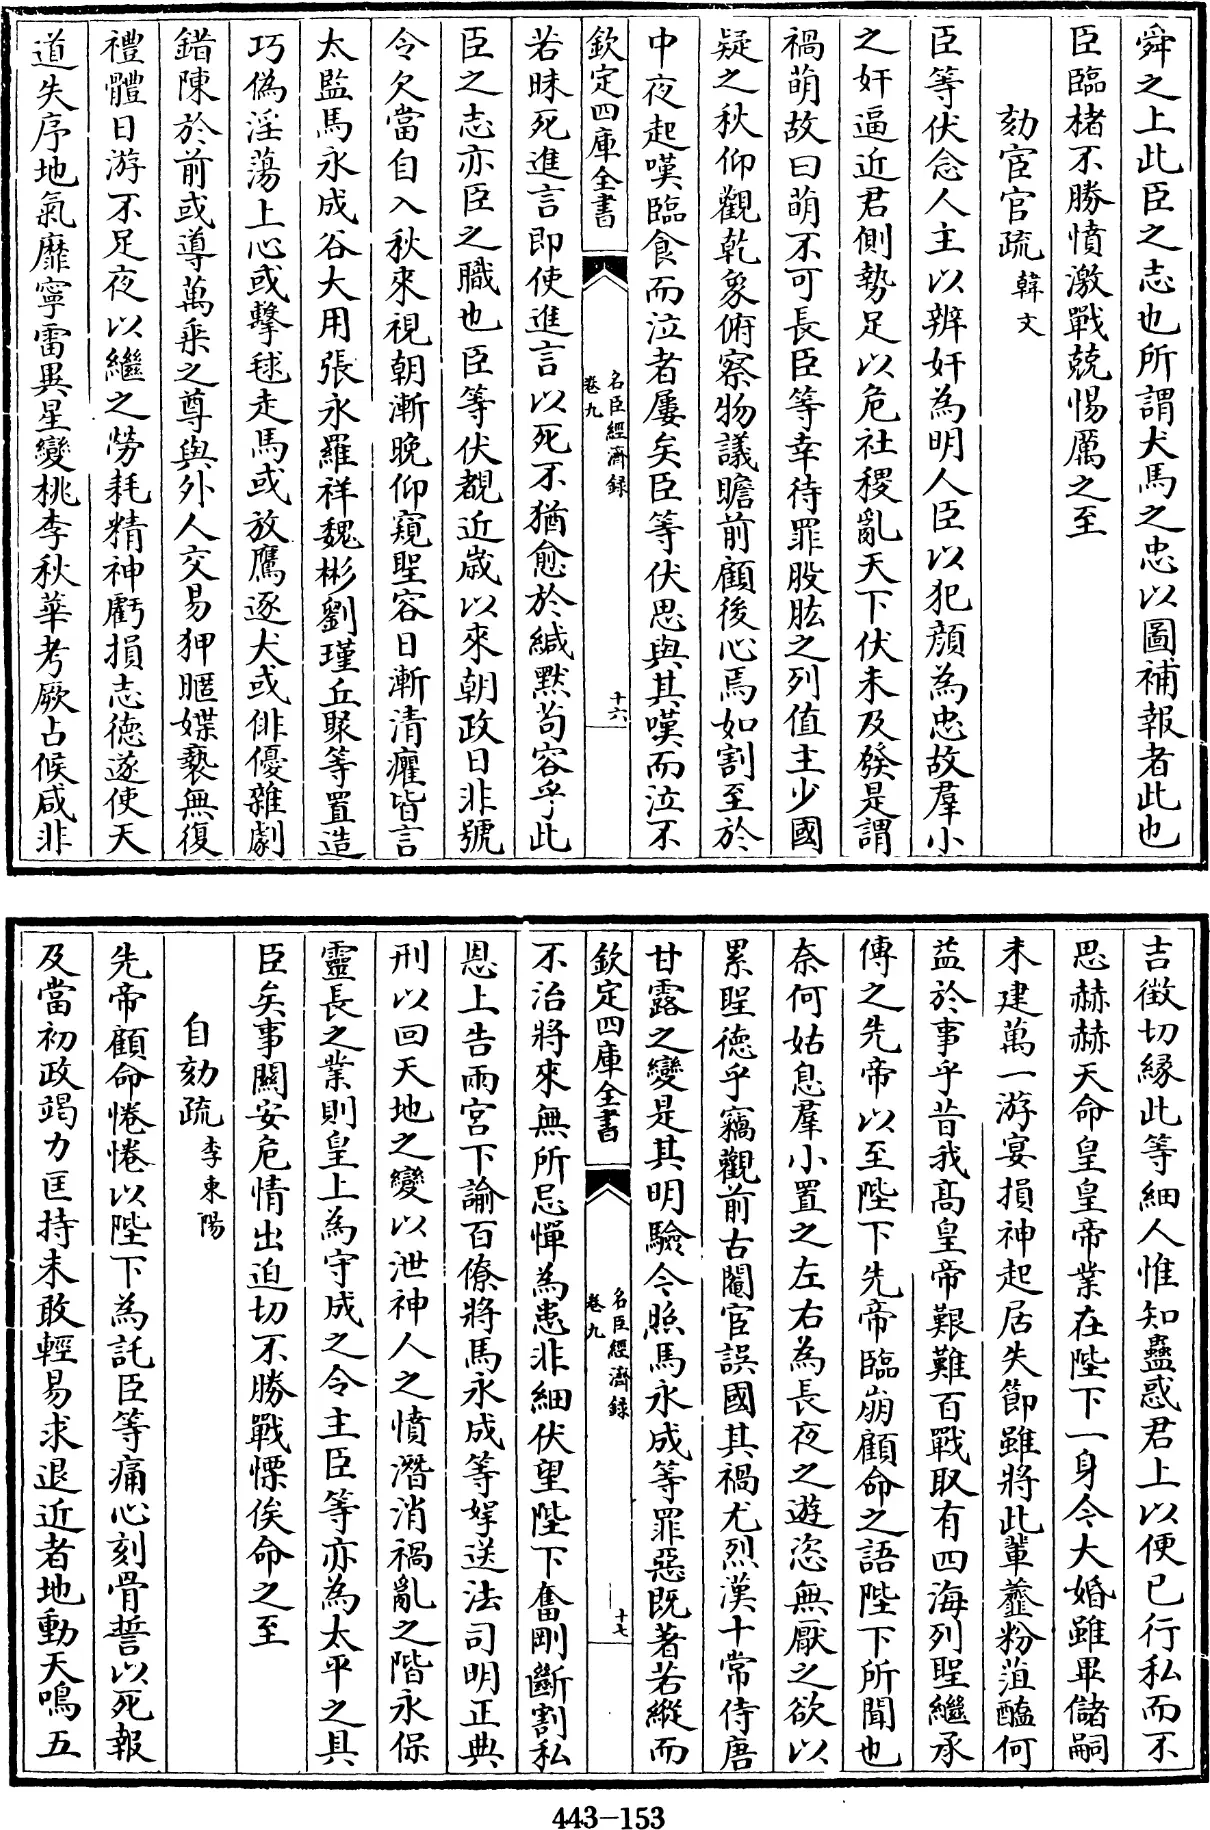 舜之上此臣之志也所謂犬馬之忠以圖補報者此也
臣臨楮不勝憤激戰兢惕厲之至
劾宦官疏 韓文
臣等伏念人主以辨奸為明人臣以犯顔為忠故羣小
之奸逼近君側勢足以危社稷亂天下伏未及發是謂
禍萌故曰萌不可長臣等幸待罪股肱之列值主少國
疑之秋仰觀乾象俯察物議瞻前顧後心焉如割至於
中夜起嘆臨食而泣者屢矣臣等伏思與其嘆而泣不
欽定四庫全書
名臣經濟錄
卷九
十六
若昧死進言即使進言以死不猶愈於緘默茍容乎此
臣之志亦臣之職也臣等伏覩近歲以來朝政日非號
令欠當自入秋來視朝漸晚仰窺聖容日漸清癯皆言
太監馬永成谷大用張永羅祥魏彬劉瑾丘聚等置造
巧偽淫蕩上心或擊毬走馬或放鷹逐犬或俳優雜劇
錯陳於前或導萬乗之尊與外人交易狎暱媟褻無復
禮體日游不足夜以繼之勞耗精神虧損志德遂使天
道失序地氣靡寧雷異星變桃李秋華考厥占候咸非
吉徵切緣此等細人惟知蠱惑君上以便已行私而不
思赫赫天命皇皇帝業在陛下一身今大婚雖畢儲嗣
未建萬一游宴損神起居失節雖將此輩虀粉葅醢何
益於事乎昔我高皇帝艱難百戰取有四海列聖繼承
傳之先帝以至陛下先帝臨崩顧命之語陛下所聞也
奈何姑息羣小置之左右為長夜之遊恣無厭之欲以
累聖德乎竊觀前古閹宦誤國其禍尤烈漢十常侍唐
甘露之變是其明驗今照馬永成等罪惡既著若縱而
欽定四庫全書
名臣經濟錄
卷九
十七
不治將來無所忌憚為患非細伏望陛下奮剛斷割私
恩上告兩宮下諭百僚將馬永成等拏送法司明正典
刑以回天地之變以泄神人之憤潛消禍亂之階永保
靈長之業則皇上為守成之令主臣等亦為太平之具
臣矣事關安危情出迫切不勝戰慄俟命之至
自劾疏 李東陽
先帝顧命惓惓以陛下為託臣等痛心刻骨誓以死報
及當初政竭力匡持未敢輕易求退近者地動天鳴五
443-153